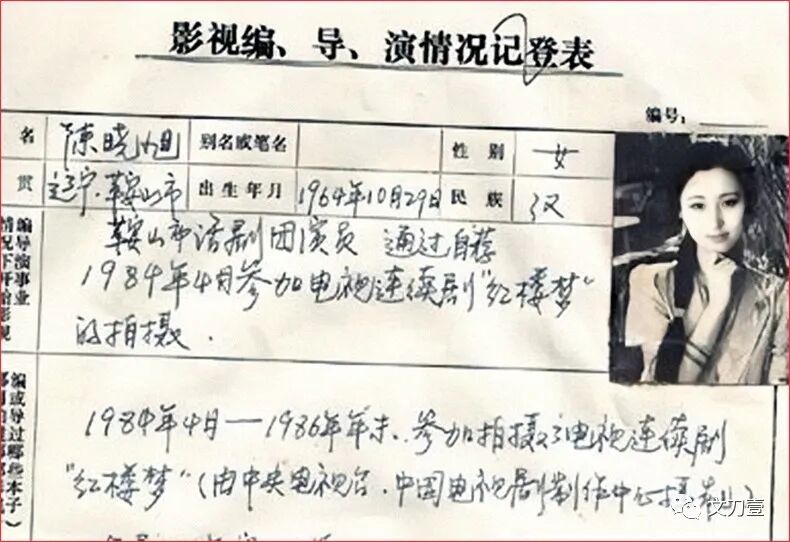 影视编、导、演情况记登表
编号:
名 陳晓旭 别名或笔名 性别 女
贯 辽宁·鞍山市 出生年月 1964年10月29日 民族 汉
编导演事业
情况下开始影视
鞍山市话剧团演员 通过自荐
1984年4月参加电视连续剧"红楼梦"
的拍摄.
编或导过哪些本子
1984年4月—1986年年末.参加拍摄了电视连续剧
"红楼梦"(由中央电视台.中国电视剧制作中心摄制)